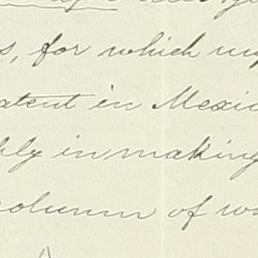 s, for which my
atent in Mexic
bly in making
column of wa